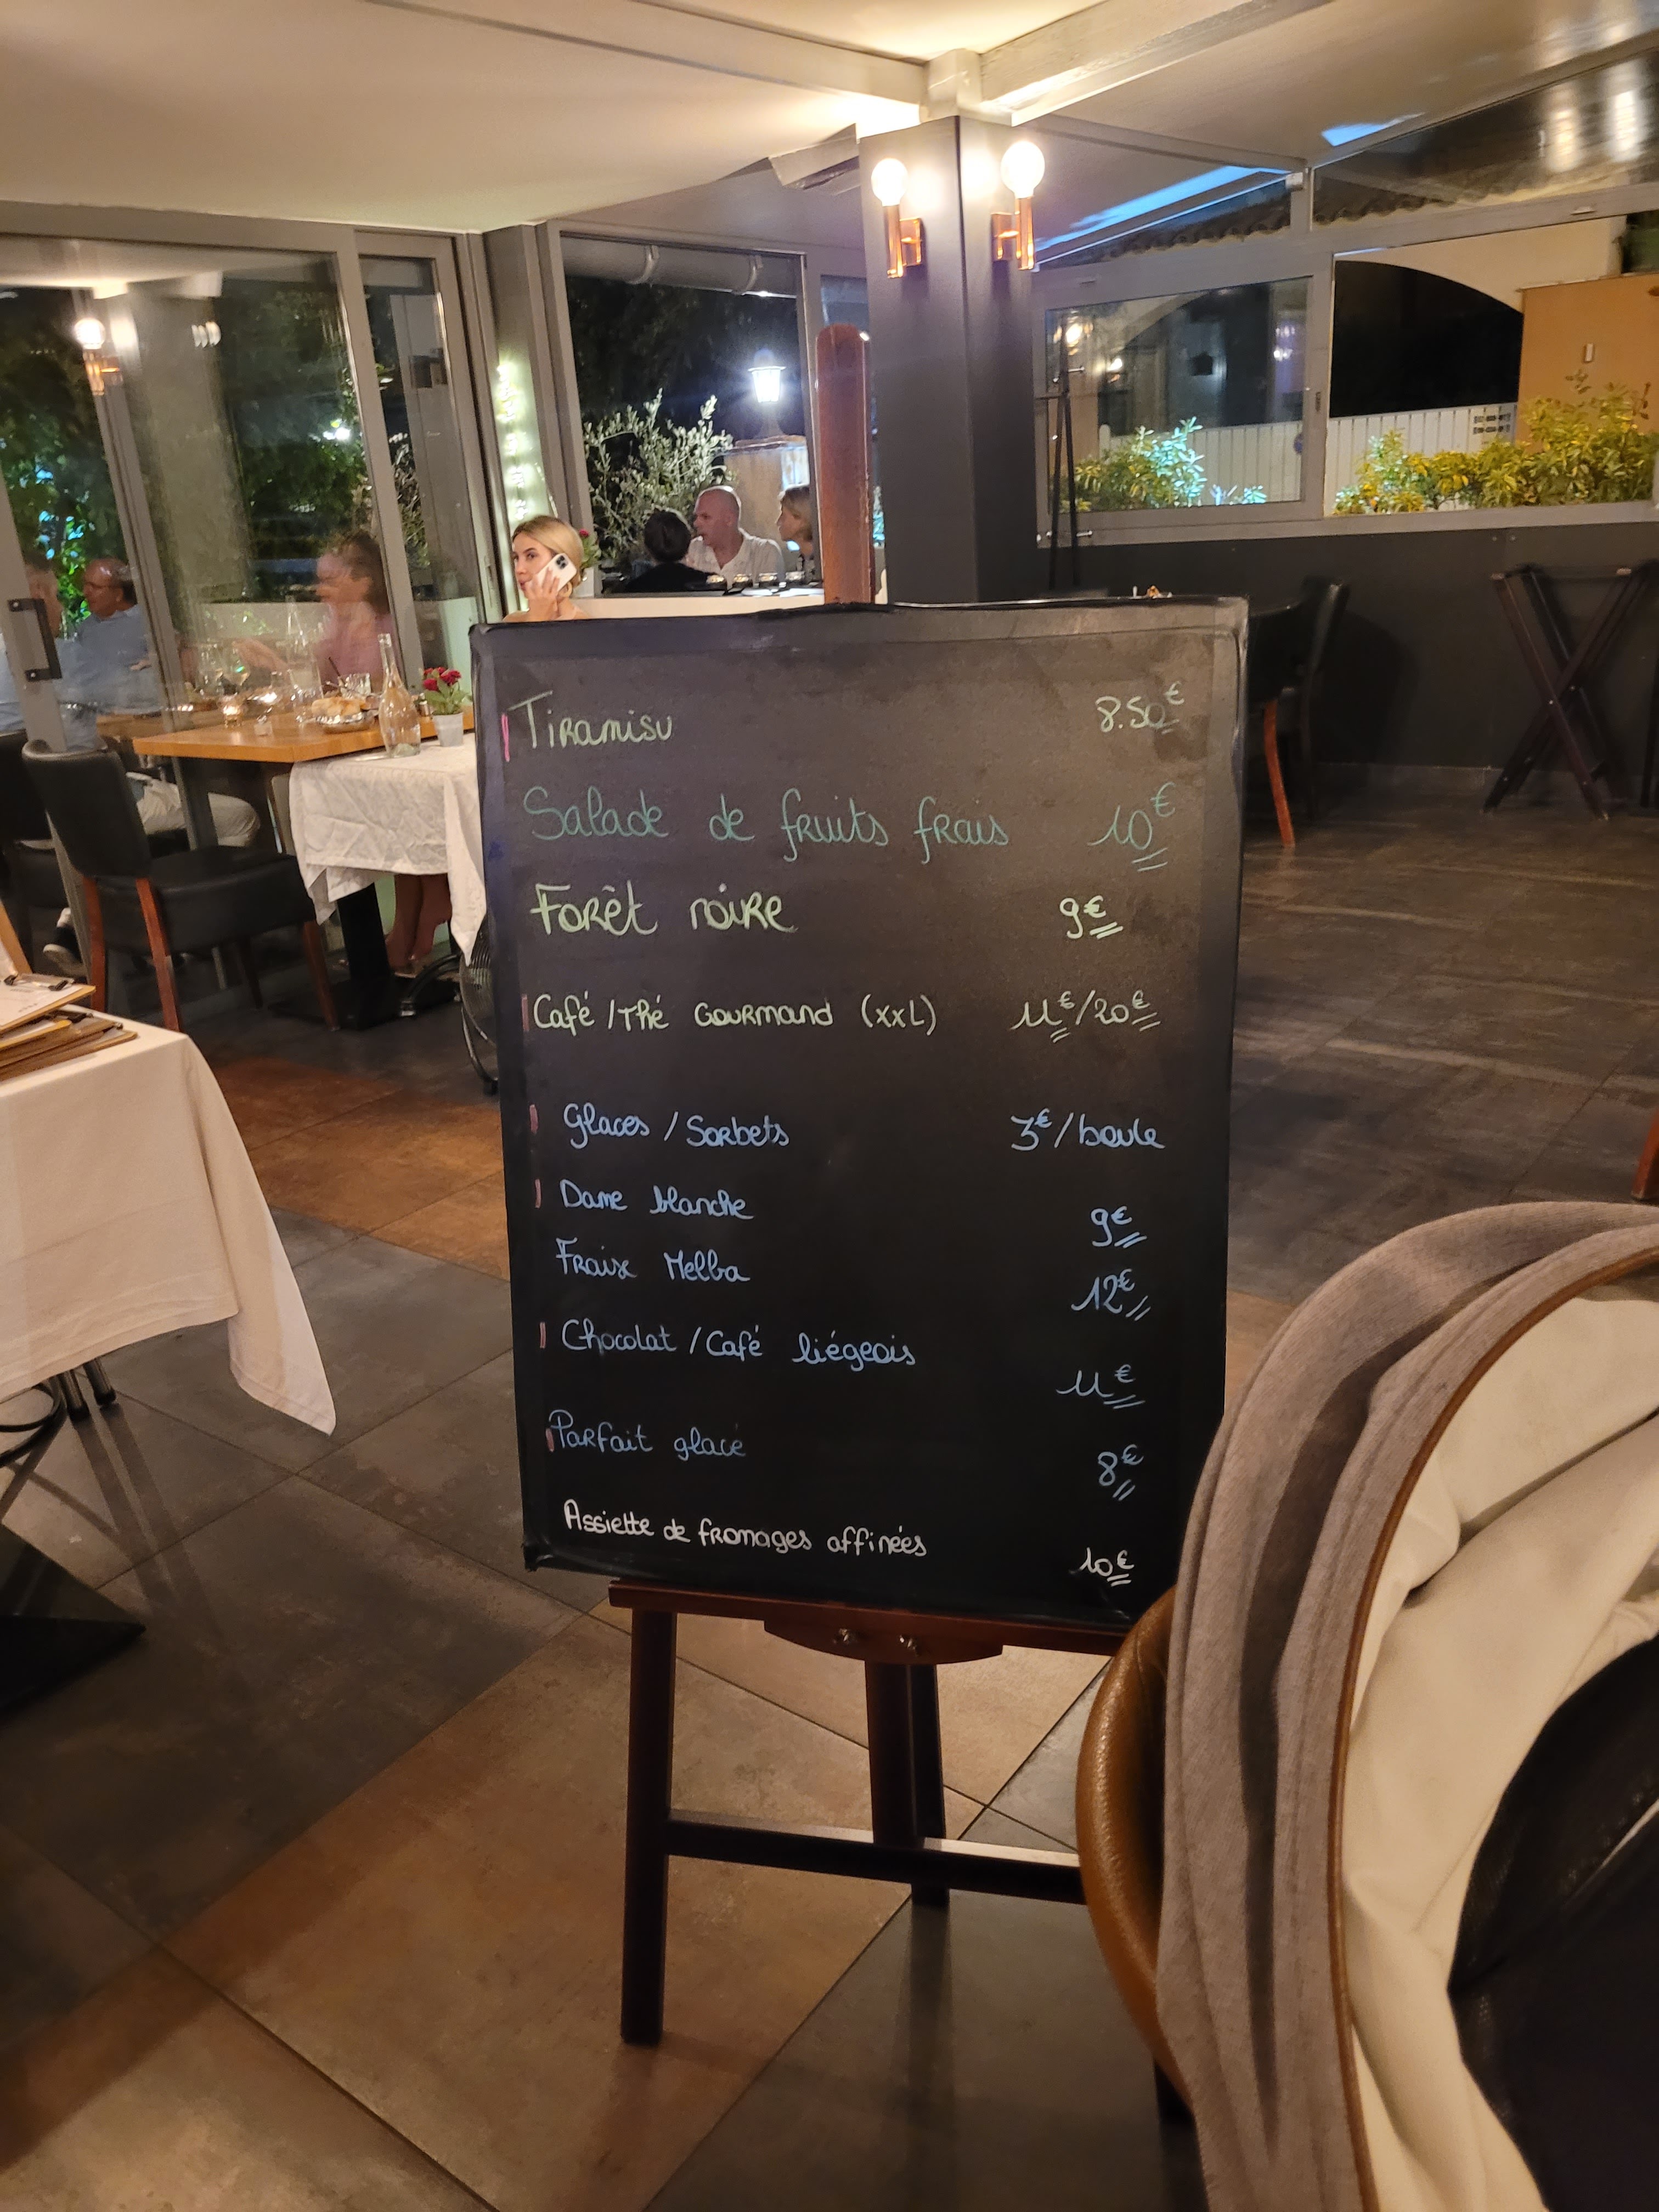 Tiramisu 8.50€
Salade de fruits frais 10€
Forêt noire 9€
Café / Thé Gourmand (xxL) 11€/20€
Glaces / Sorbets 3€/boule
Dame blanche 9€
Fraise Melba 12€
Chocolat / Café liégeois 11€
Parfait glacé 8€
Assiette de fromages affinées 10€